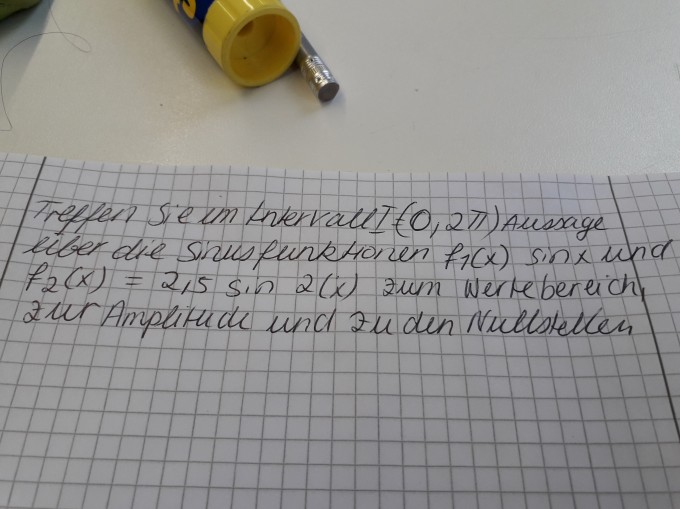 Treffen Sie im Intervall I {0, 2π) Aussage
über die Sinusfunktionen f1(x) sinx und
f2(x) = 2,5 sin 2(x) zum Wertebereich,
zur Amplitude und zu den Nullstellen